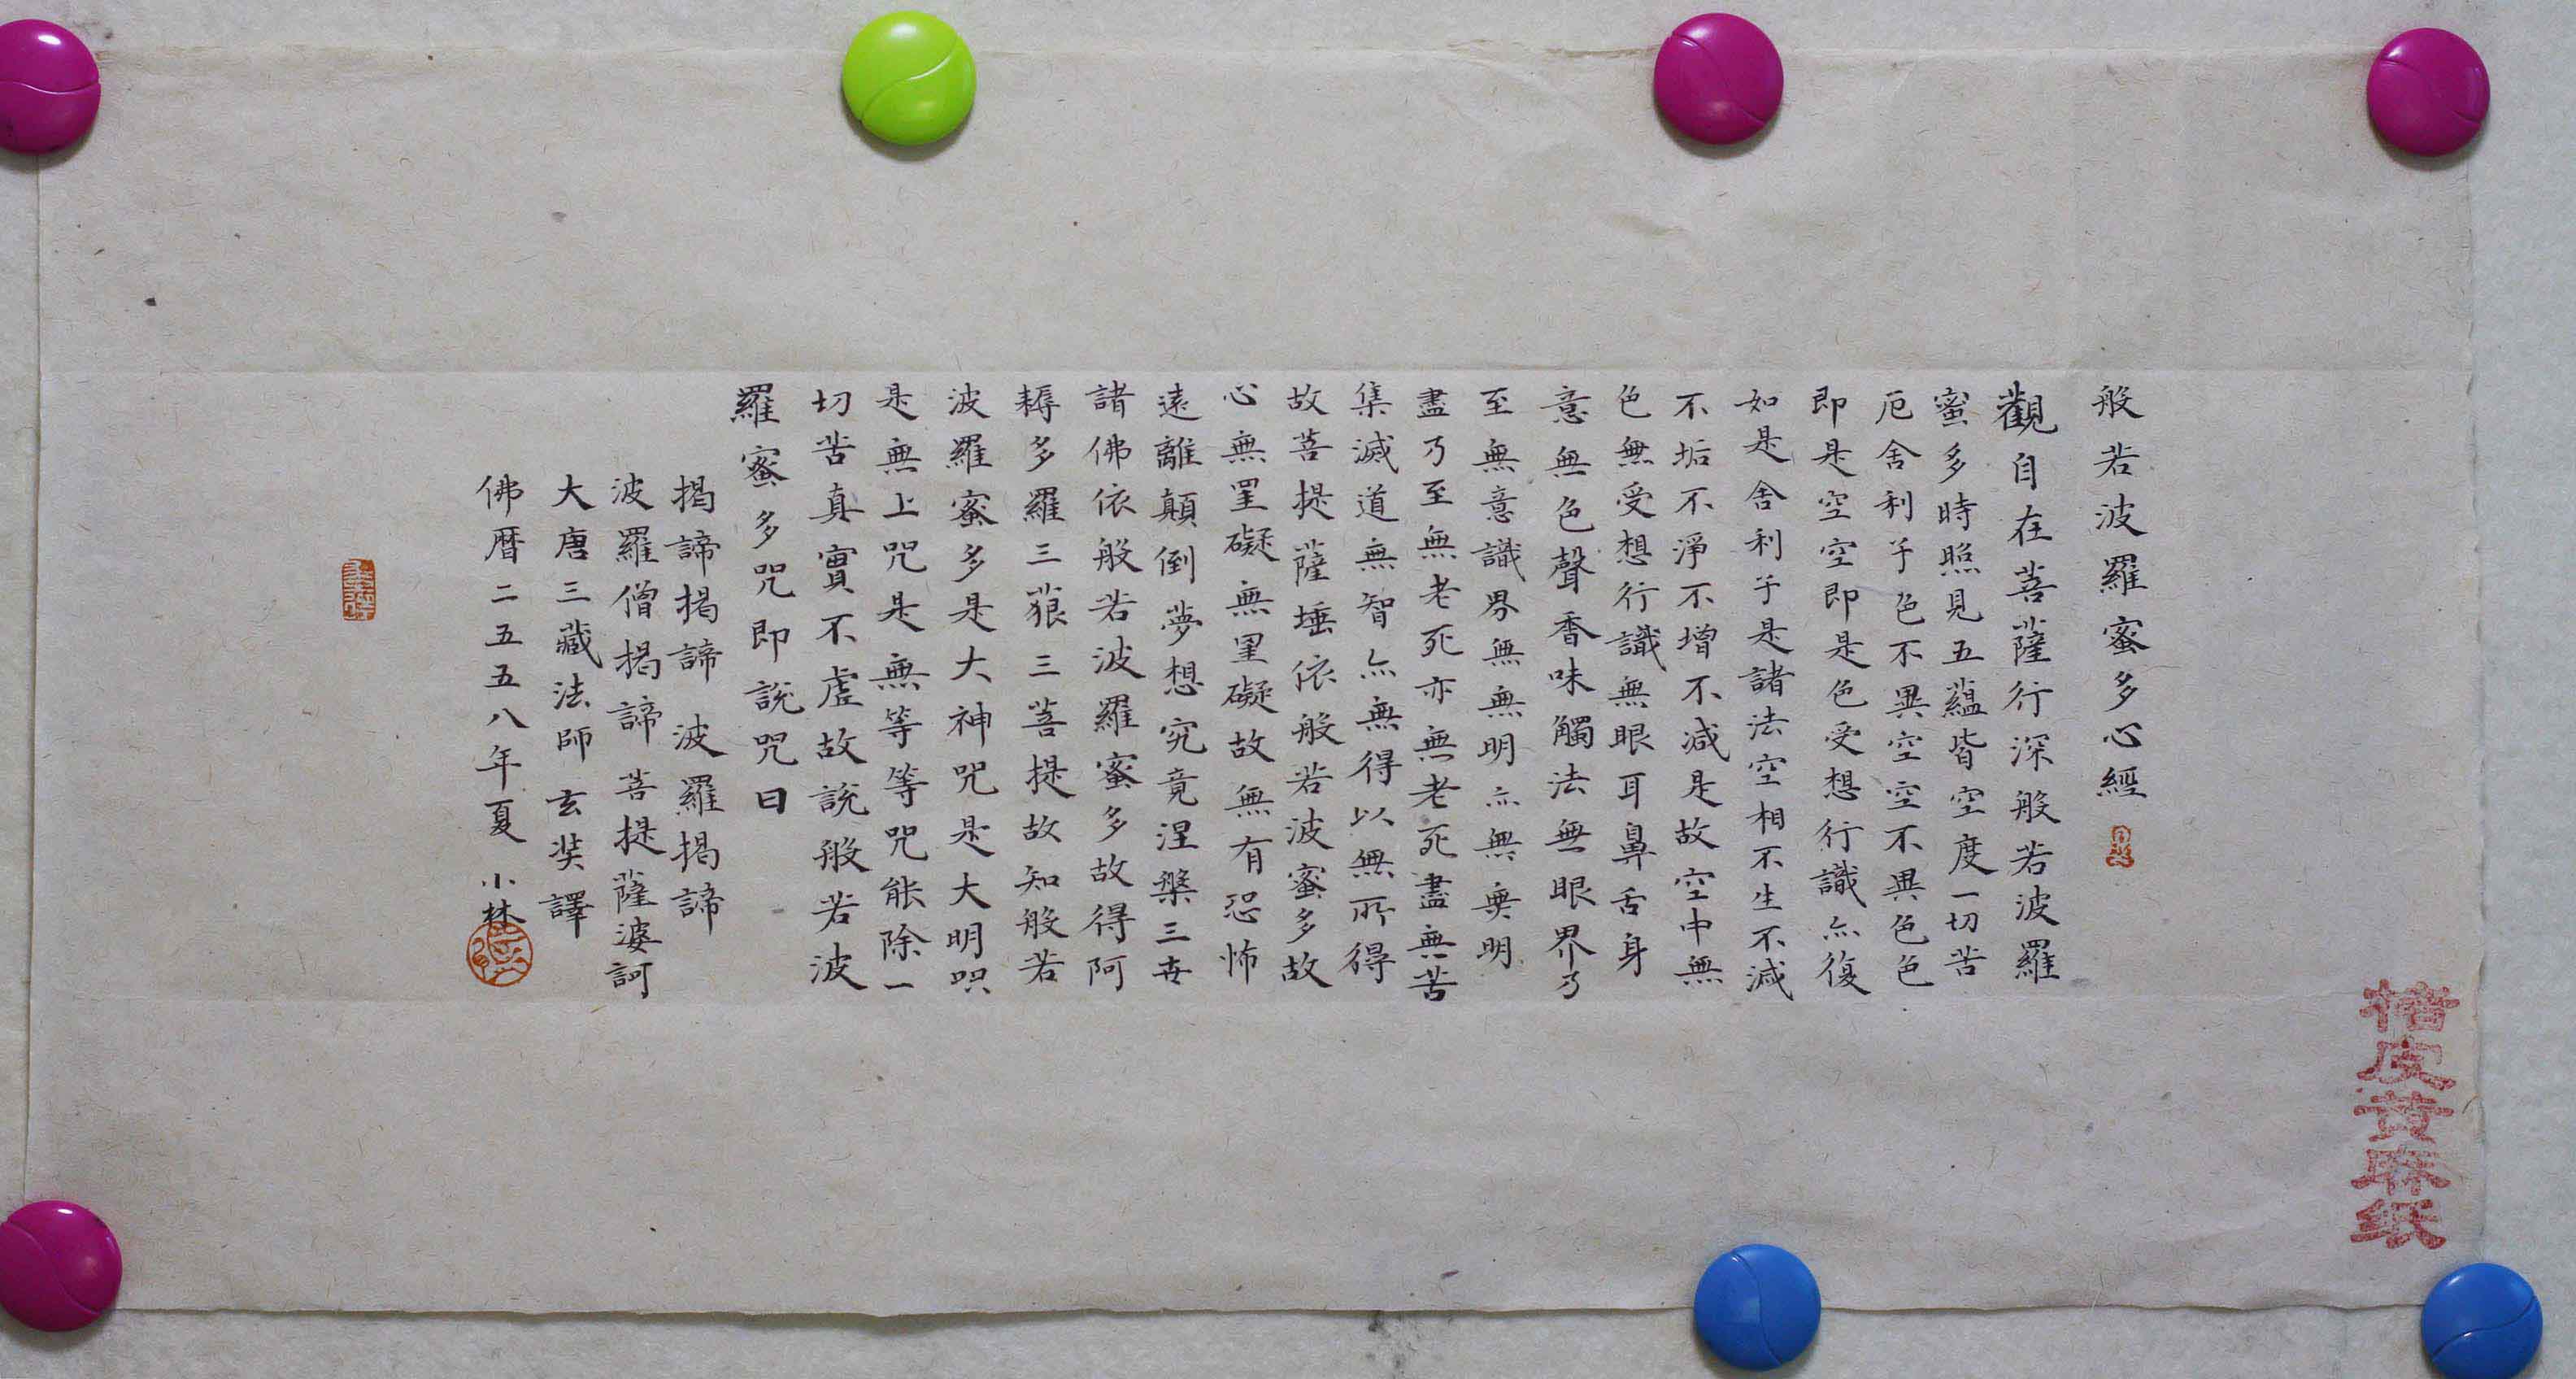 般若波羅蜜多心經
觀自在菩薩行深般若波羅
蜜多時照見五蘊皆空度一切苦
厄舍利子色不異空空不異色色
即是空空即是色受想行識亦復
如是舍利子是諸法空相不生不滅
不垢不淨不增不減是故空中無
色無受想行識無眼耳鼻舌身
意無色聲香味觸法無眼界乃
至無意識界無無明亦無無明
盡乃至無老死亦無老死盡無苦
集滅道無智亦無得以無所得
故菩提薩埵依般若波蜜多故
心無罣礙無罣礙故無有恐怖
遠離顛倒夢想究竟涅槃三世
諸佛依般若波羅蜜多故得阿
耨多羅三藐三菩提故知般若
波羅蜜多是大神咒是大明咒
是無上咒是無等等咒能除一
切苦真實不虛故說般若波
羅蜜多咒即說咒曰
揭諦揭諦 波羅揭諦
波羅僧揭諦 菩提薩婆訶
大唐三藏法師玄奘譯
佛曆二五五八年夏 小林
楮皮黄麻纸